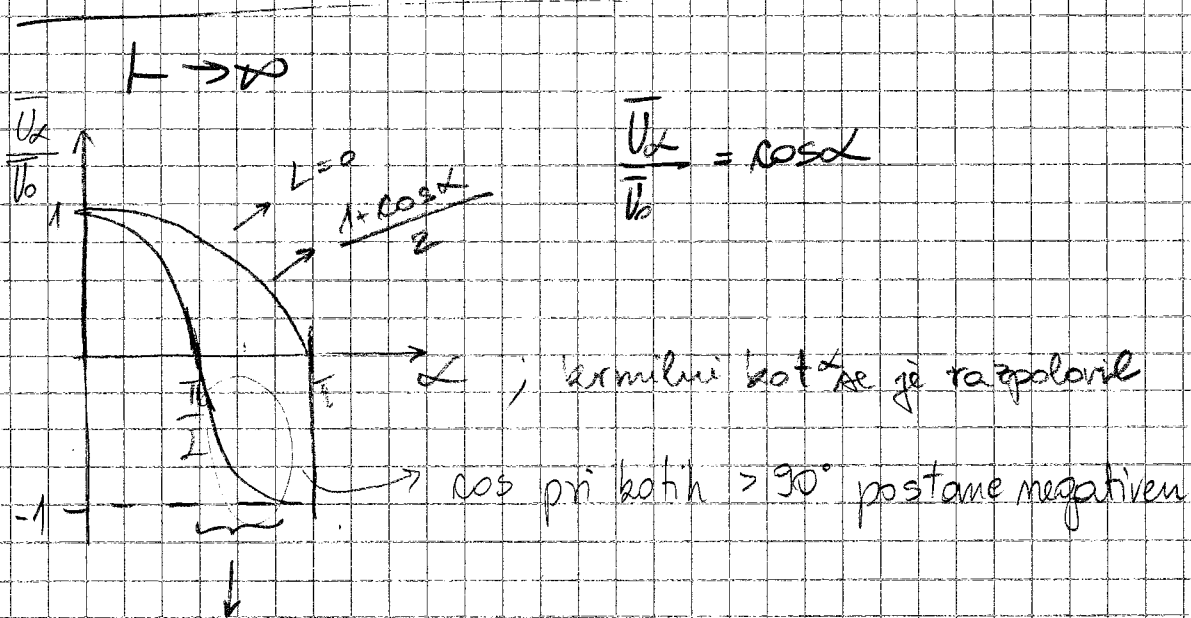 L → ∞
Ūα / Ū₀
1
L=0
(1+cosα) / 2
Ūα / Ū₀ = cosα
π/2
π
α ; krmilni kot α se je razpolovil
cos pri kotih > 90° postane negativen
-1